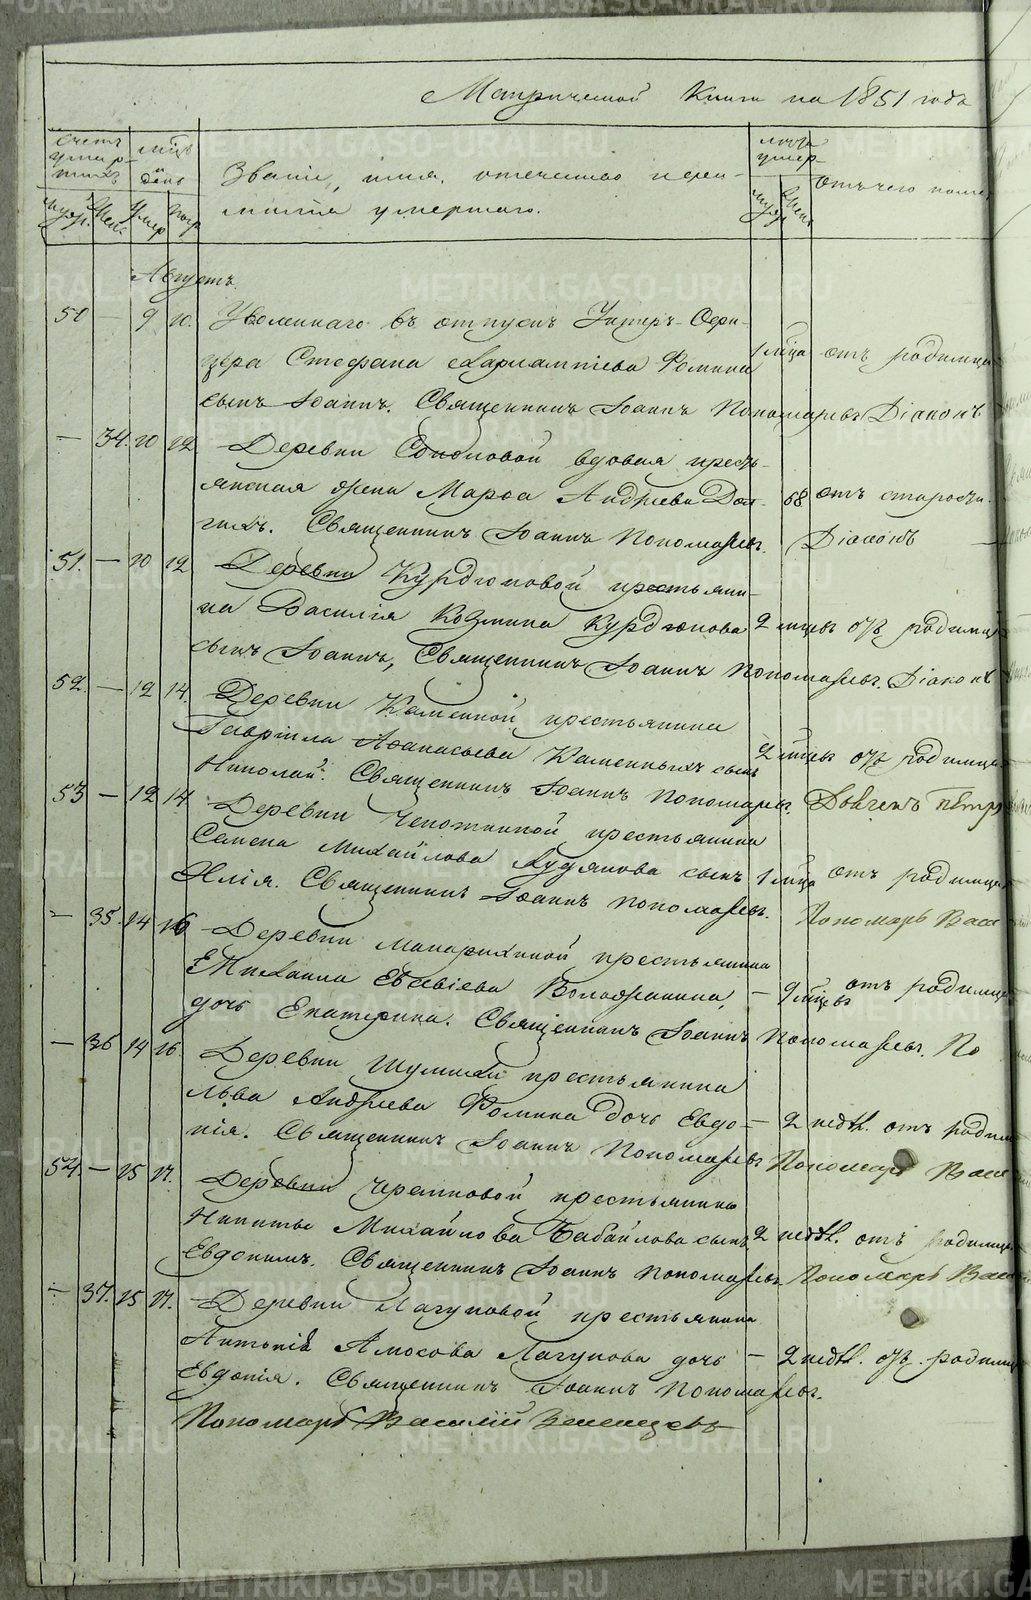 Метрической Книги на 1851 годъ
Счетъ умершихъ
Мѣсъ и день
Званіе, имя, отечество и фамилія умершаго.
лѣта умер-
Отъ чего поме
муж. жен. умер погр
муж. жен.
Августъ.
50 — 9 10. Уволеннаго въ отпускъ Унтеръ-Офи-
цера Стефана Харлампіева Фомина 1 мѣца отъ родимца
сынъ Іоаннъ. Священникъ Іоаннъ Пономаревъ Діаконъ
— 34. 10 12 Деревни Соколовой вдовая кресть-
янская жена Марѳа Андреева Дол- 68 отъ старости.
гихъ. Священникъ Іоаннъ Пономаревъ. Діаконъ
51. — 10 12 Деревни Курдюковой крестьяни-
на Василія Козмина Курдюкова 2 мѣцевъ отъ родимца
сынъ Іоаннъ, Священникъ Іоаннъ Пономаревъ. Діаконъ
52. — 12 14. Деревни Каменной крестьянина
Гавріила Аѳанасьева Каменныхъ сынъ 2 мѣцевъ отъ родимца
Николай. Священникъ Іоаннъ Пономаревъ.
53 — 12 14 Деревни крестьянина
Семена Михайлова Худякова сынъ 1 мѣца отъ родимца
Илія. Священникъ Іоаннъ Пономаревъ. Пономарь Васи
— 35 14 16 Деревни Макарихиной крестьянина
Михаила Евсевіева — 2 мѣцевъ отъ родимца
дочь Екатерина. Священникъ Іоаннъ Пономаревъ. По
— 36 14 16. Деревни крестьянина
Льва Андреева Фомина дочь Евдо- — 2 недѣл. отъ родим
кія. Священникъ Іоаннъ Пономаревъ Пономарь Васи
54. — 15 17. Деревни Черемховой крестьянина
Никиты Михайлова Бабайлова сынъ 2 недѣл. отъ родимца
Евдокимъ. Священникъ Іоаннъ Пономаревъ. Пономарь Васи
— 37. 15 17. Деревни Лагуновой крестьянина
Антонія Амосова Лагунова дочь — 2 недѣл. отъ родимц
Евдокія. Священникъ Іоаннъ Пономаревъ.
Пономарь Василій
METRIKI.GASO-URAL.RU